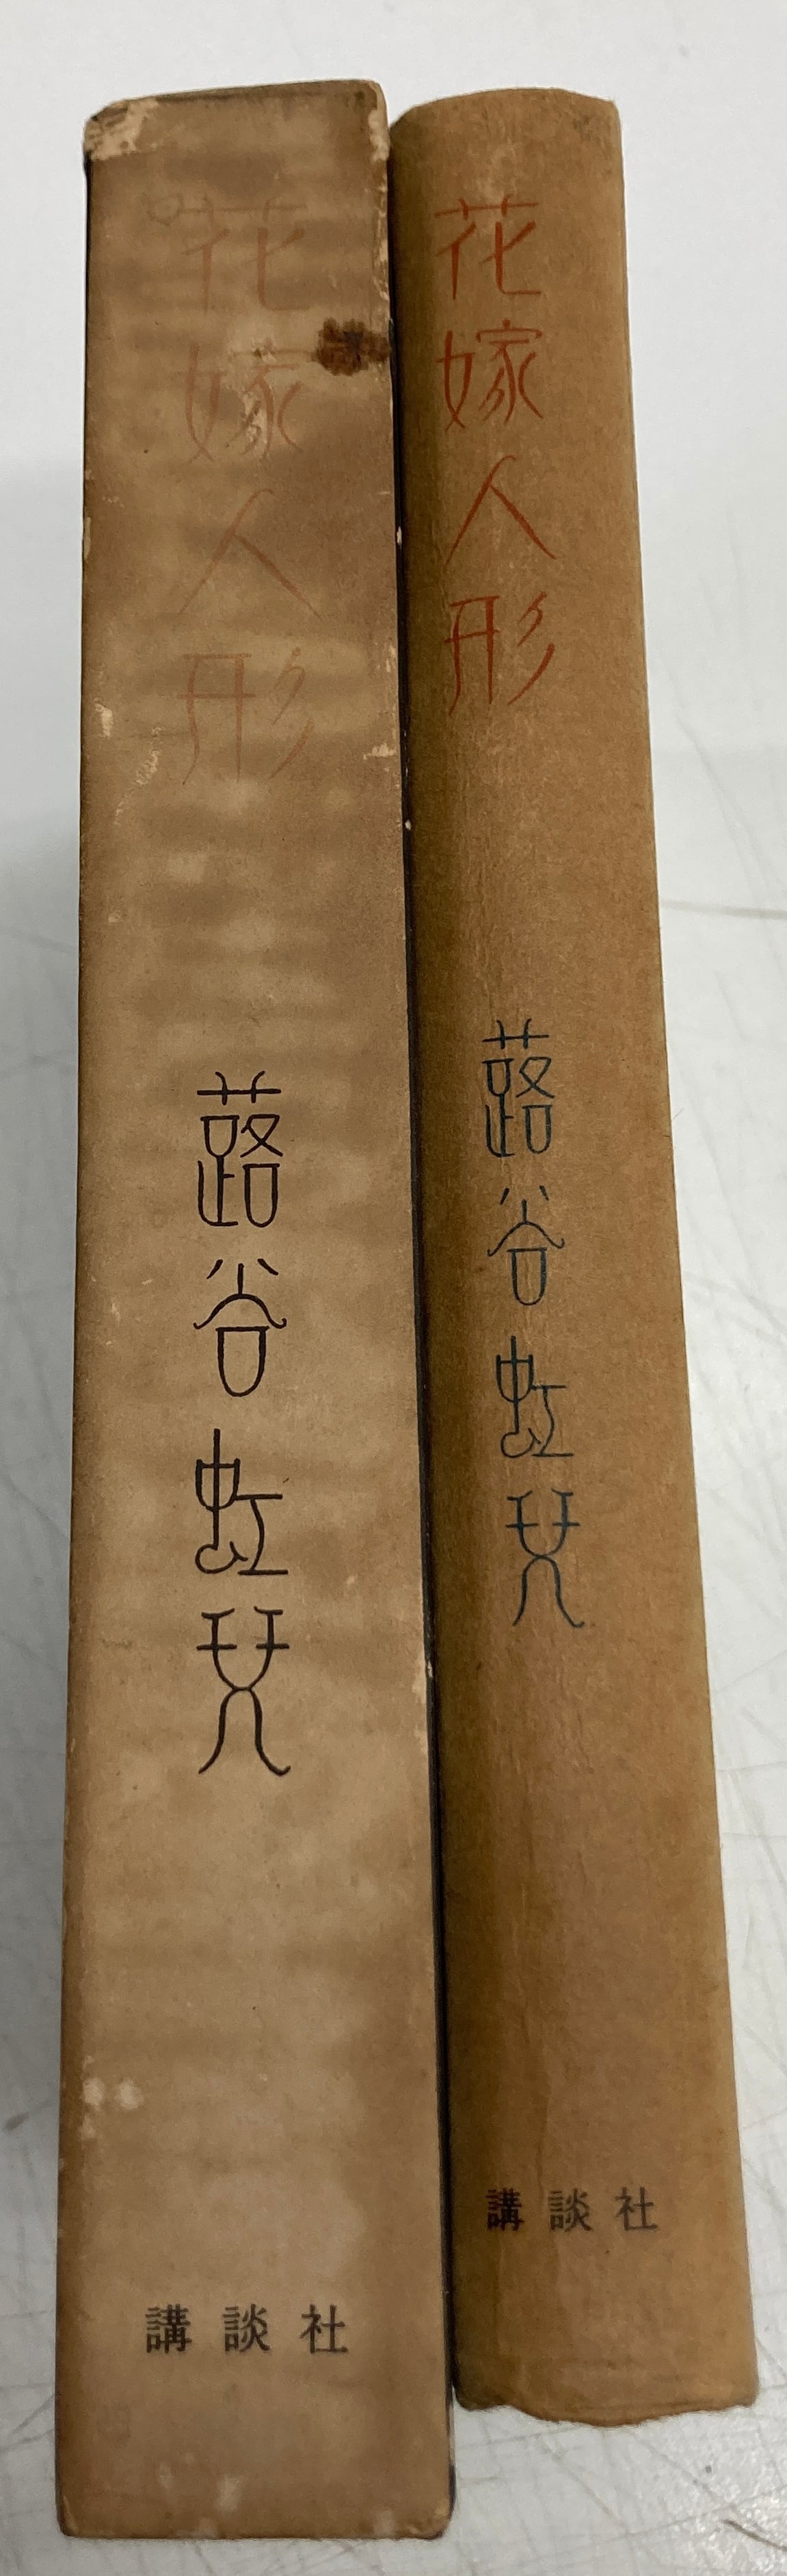 花嫁人形
蕗谷虹児
講談社
花嫁人形
蕗谷虹児
講談社